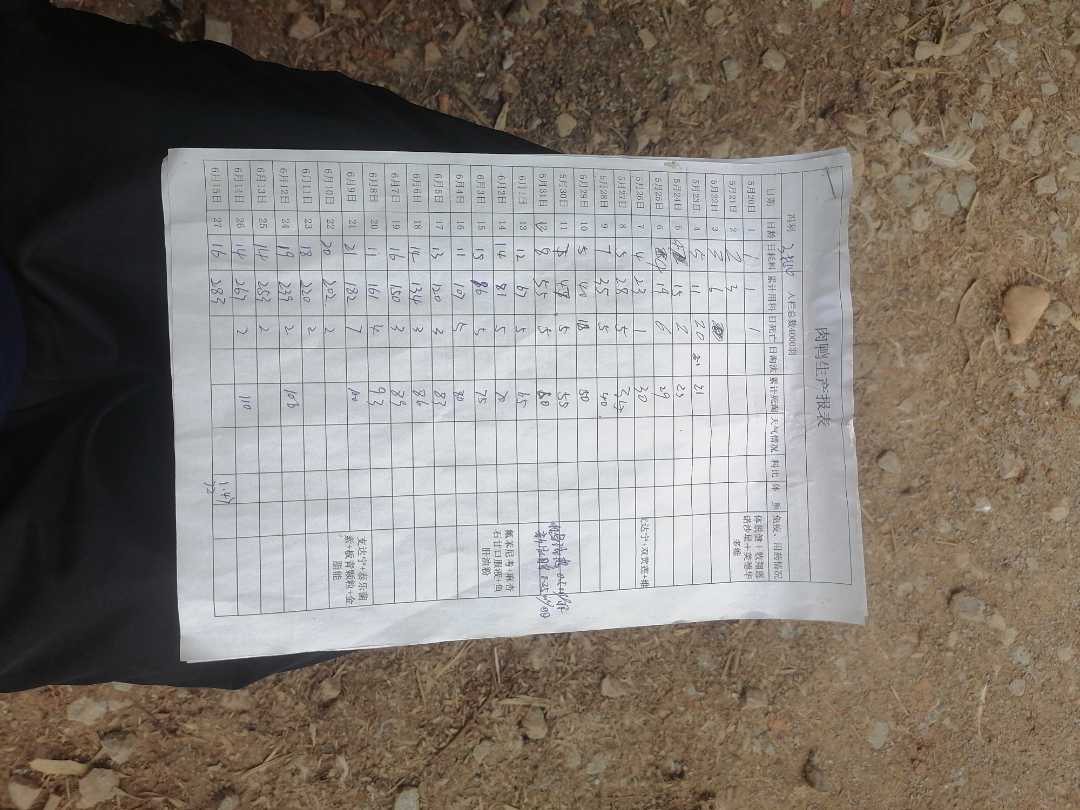 肉鸭生产报表
入栏总数4000羽
日期 日龄 日耗料 累计用料 日死亡 日淘汰 累计死淘 天气情况 料比 体 免疫、用药情况
5月20日 1 1 1 1
5月21日 2 2 3
5月22日 3 3 6
5月23日 4 5 11 20 21
5月24日 5 15 2 23
5月25日 6 19 6 29
5月26日 7 4 23 1 30
5月27日 8 5 28 5
5月28日 9 7 35 5 40
5月29日 10 5 40 50
5月30日 11 5 55
5月31日 12 8 55 5 60
6月1日 13 12 67 5 65
6月2日 14 14 81 5 70
氟苯尼考+麻杏
石甘口服液+鱼
肝油粉
6月3日 15 15 5 75
6月4日 16 11 107 5 80
6月5日 17 13 120 3 83
6月6日 18 14 134 3 86
6月7日 19 16 150 3 89
6月8日 20 11 161 4 93
6月9日 21 21 182 7 100
支达宁+泰乐菌
素+板青颗粒+金
脂能
6月10日 22 20 202 2
6月11日 23 18 220 2
6月12日 24 19 239 2 106
6月13日 25 14 253 2
6月14日 26 14 267 2 110
6月15日 27 16 283
1.47
72